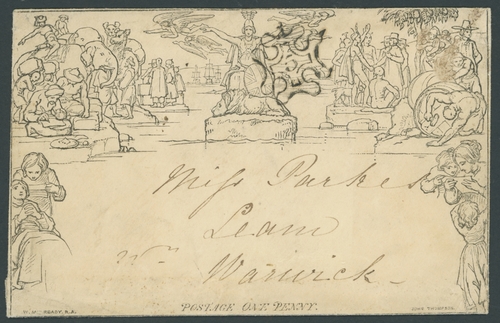 Miss Parkes
Leam
Nr.
Warwick
POSTAGE ONE PENNY.
W. MULREADY, R.A.
JOHN THOMPSON